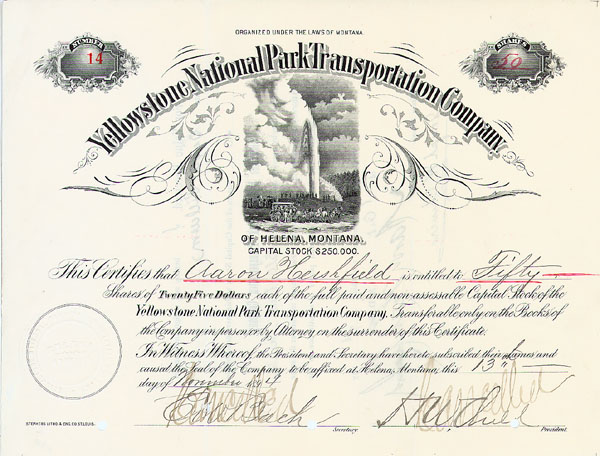 ORGANIZED UNDER THE LAWS OF MONTANA.
NUMBER
14
SHARES
50
Yellowstone National Park Transportation Company.
OF HELENA, MONTANA.
CAPITAL STOCK $250,000.
This Certifies that Aaron Hershfield is entitled to Fifty
Shares of Twenty Five Dollars each of the full paid and non-assessable Capital Stock of the
Yellowstone National Park Transportation Company, Transferable only on the Books of
the Company in person or by Attorney on the surrender of this Certificate.
In Witness Whereof, the President and Secretary have hereto subscribed their names and
caused the Seal of the Company to be affixed at Helena, Montana, this 13th
day of November 1914
Cancelled
Cancelled
Secretary.
President.
STEPHENS LITHO & ENG CO ST. LOUIS.